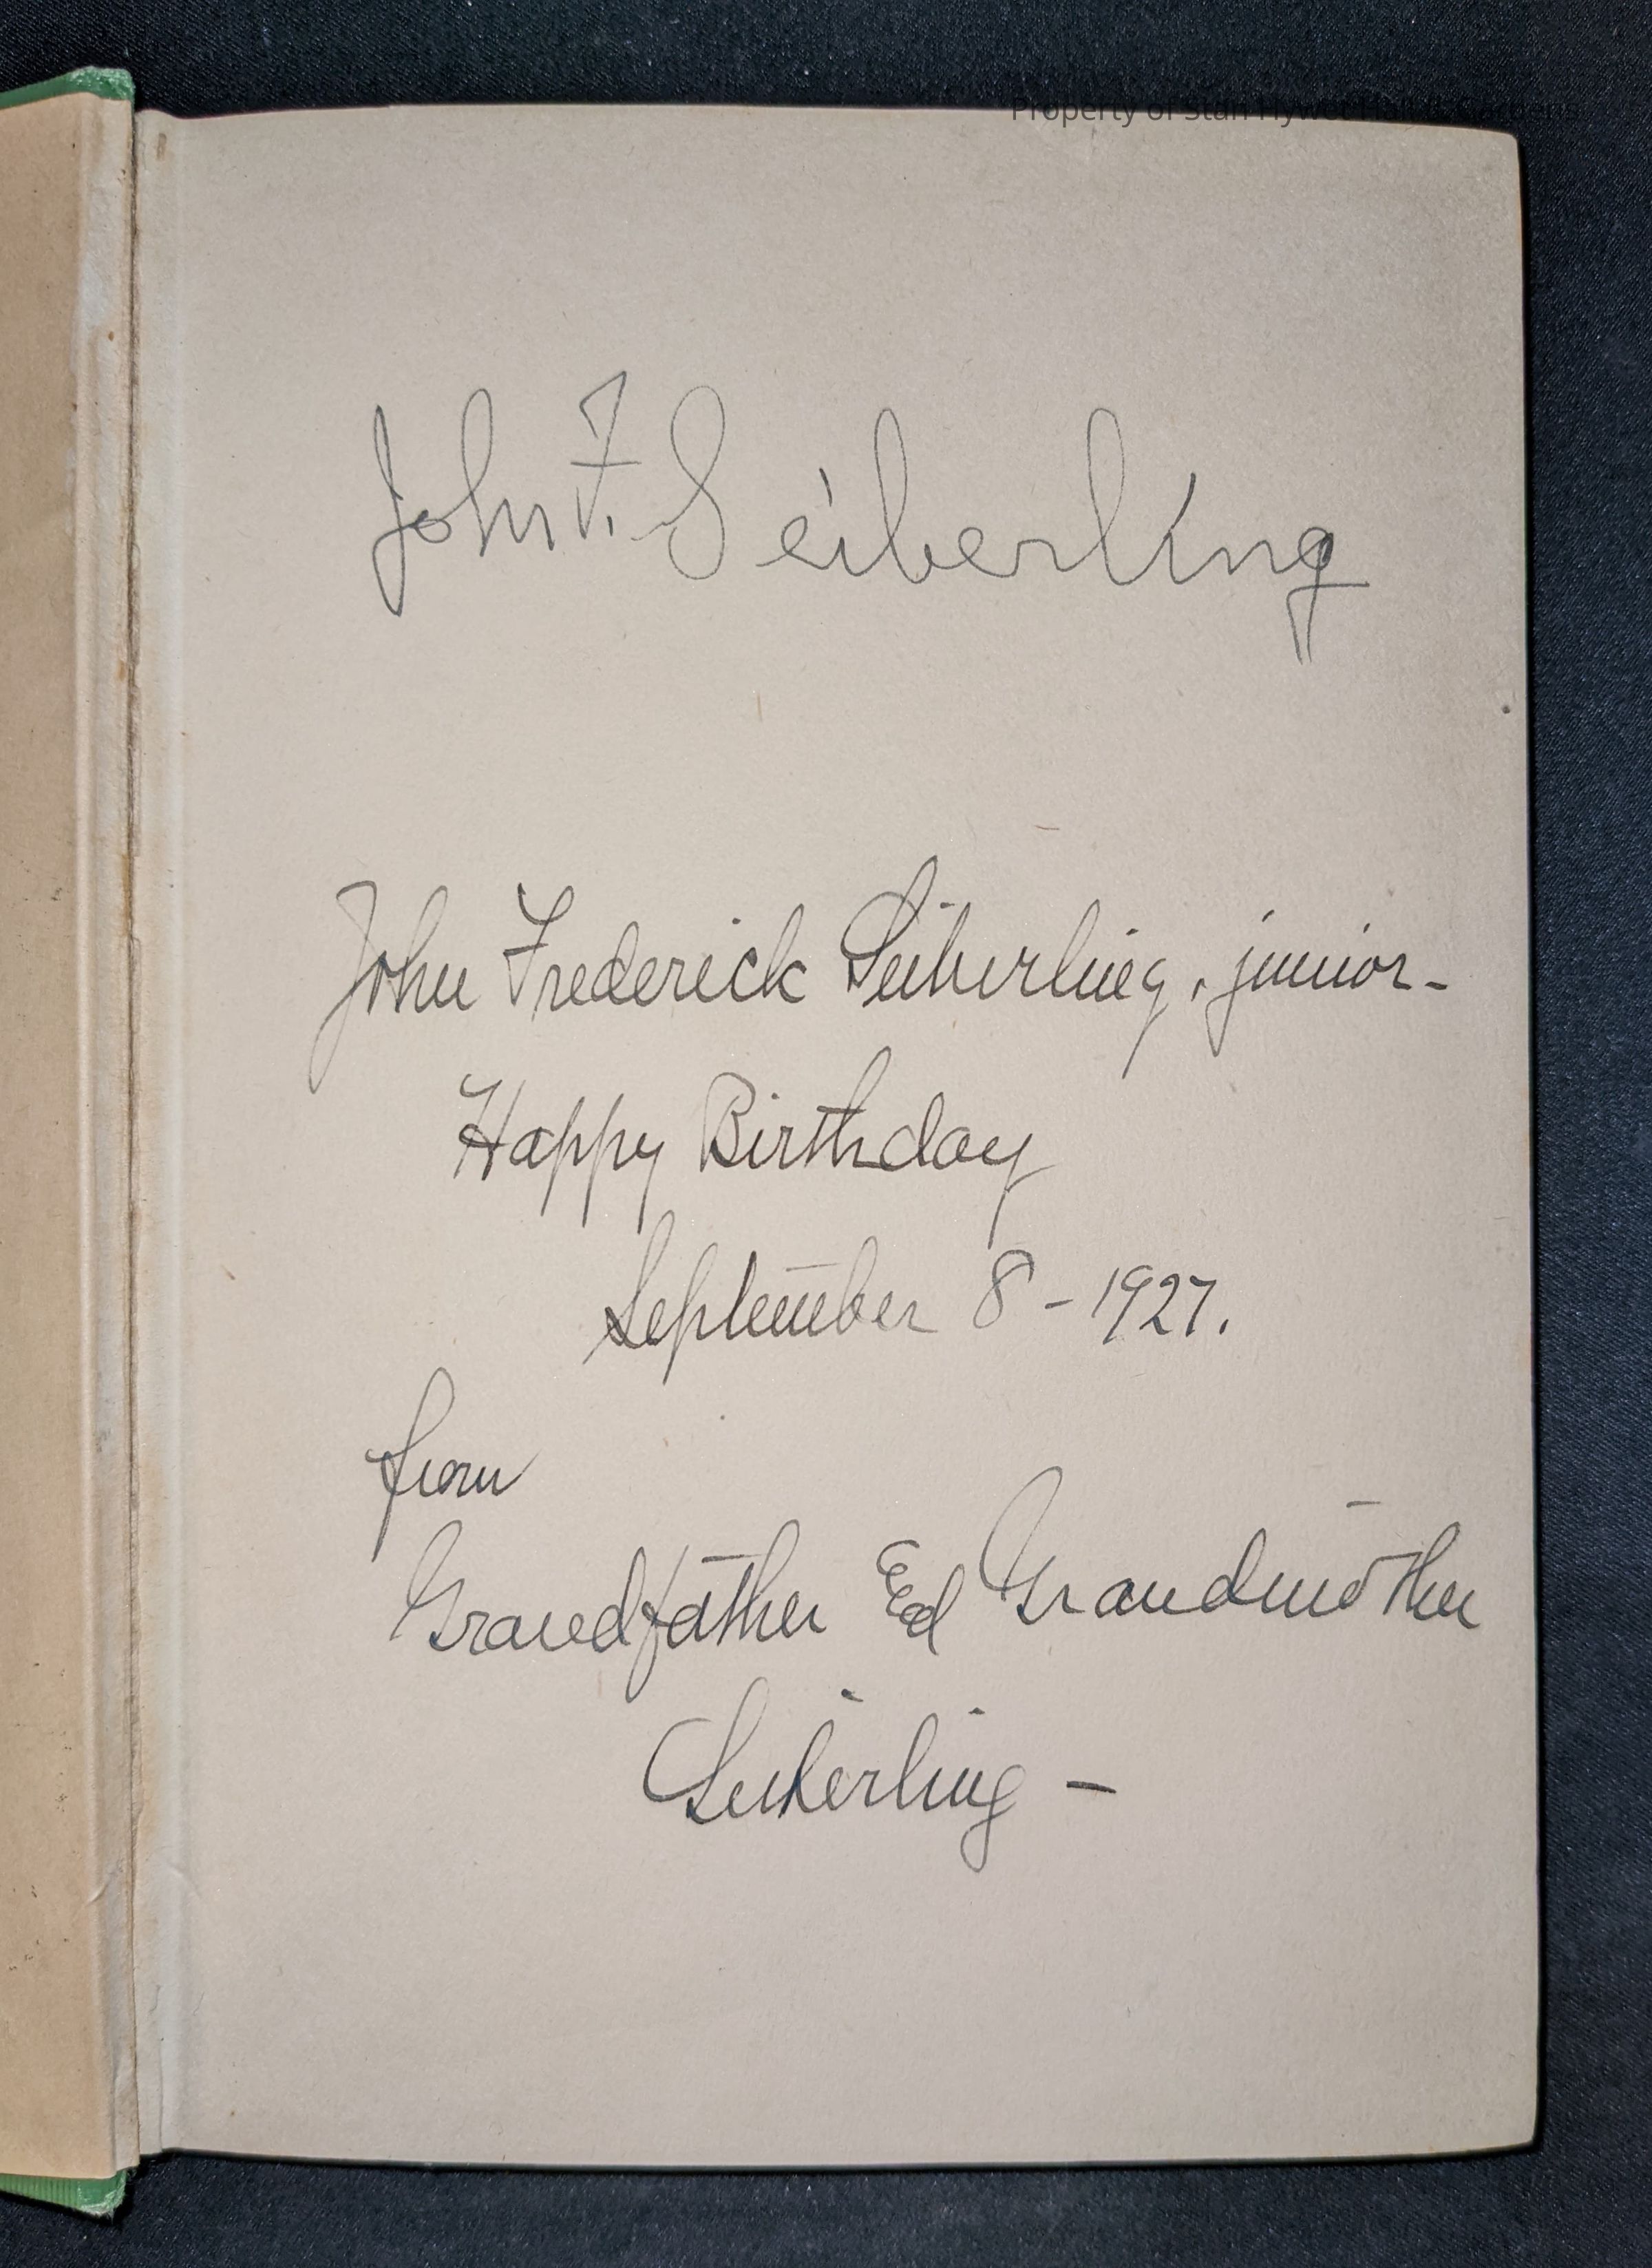 Property of Stan Hywet Hall & Gardens
John F. Seiberling
John Frederick Seiberling, junior-
Happy Birthday
September 8-1927.
from
Grandfather Ed Grandmother
Seiberling -